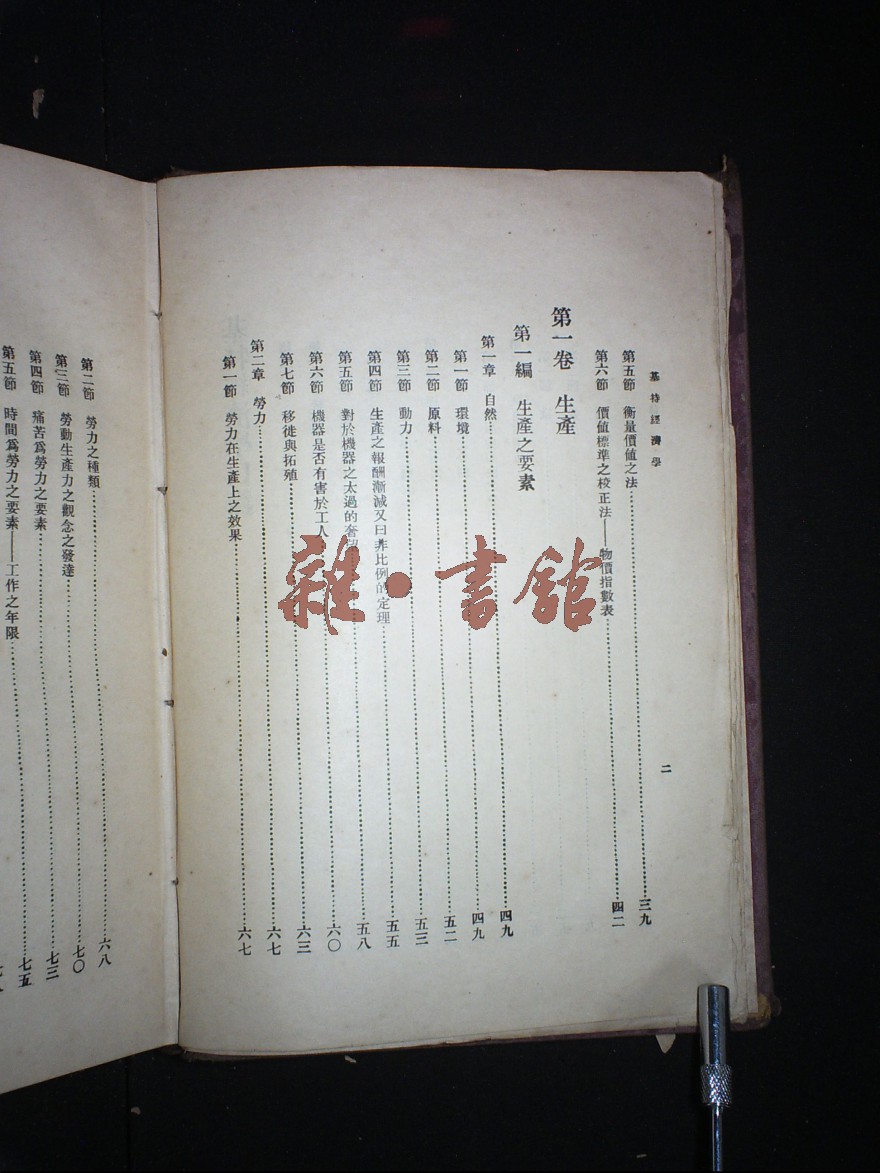 基特經濟學
二
第五節 衡量價値之法………三九
第六節 價値標準之校正法——物價指數表………四二
第一卷 生產
第一編 生產之要素
第一章 自然………四九
第一節 環境………四九
第二節 原料………五二
第三節 動力………五三
第四節 生產之報酬漸減又曰非比例的定理………五五
第五節 對於機器之太過的奢望………五八
第六節 機器是否有害於工人………六〇
第七節 移徙與拓殖………六三
第二章 勞力………六七
第一節 勞力在生產上之效果………六七
第二節 勞力之種類………六八
第三節 勞動生產力之觀念之發達………七〇
第四節 痛苦爲勞力之要素………七三
第五節 時間爲勞力之要素——工作之年限………七五
雜·書館